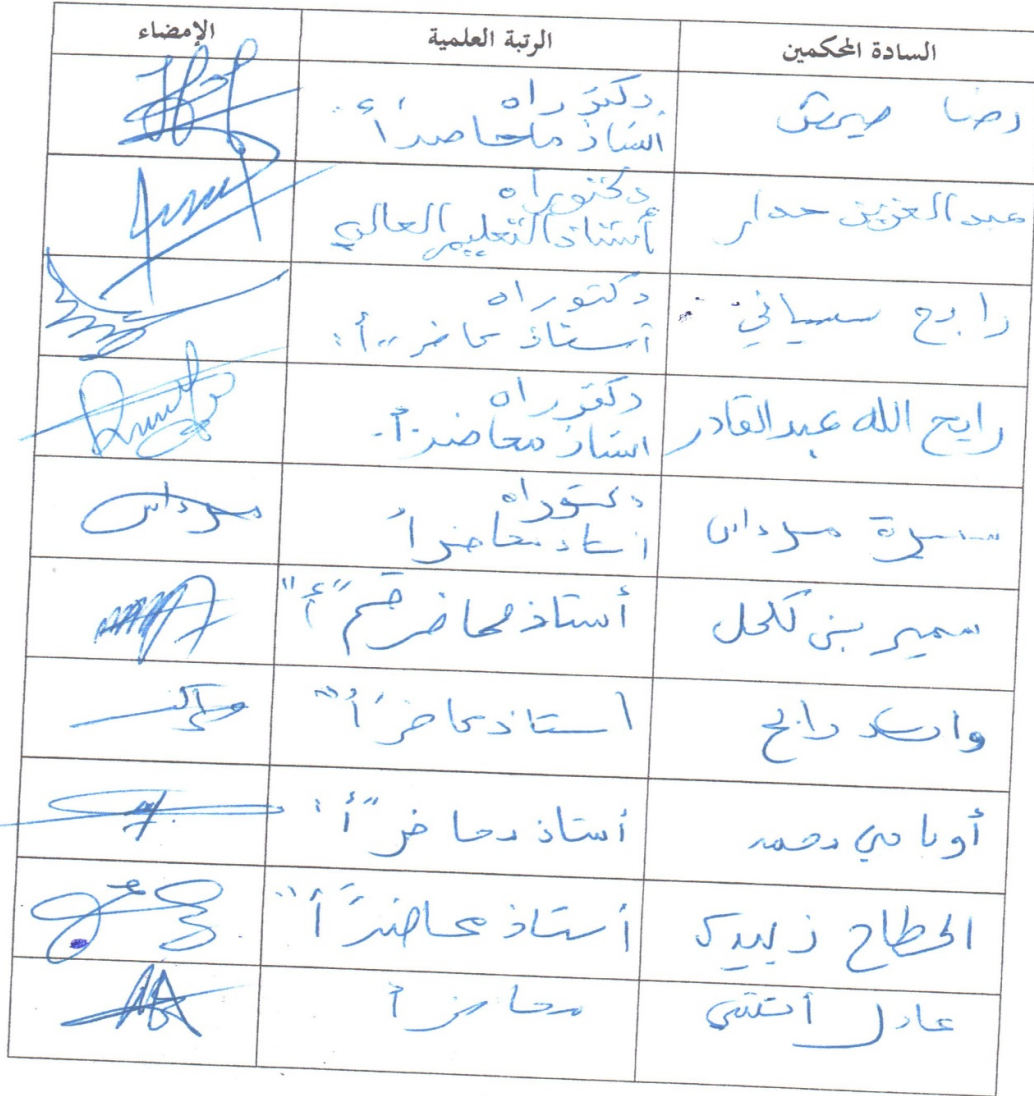 السادة المحكمين الرتبة العلمية الإمضاء
رضا
دكتوراه
أستاذ محاضر أ
عبد العزيز حدار
دكتوراه
أستاذ التعليم العالي
رابح سيساني
دكتوراه
أستاذ محاضر "أ"
رابح الله عبد القادر
دكتوراه
استاذ محاضر أ
مرداس
دكتوراه
استاذ محاضر أ
مرداس
سمير بن لكحل أستاذ محاضر قسم "أ"
رابح أستاذ محاضر "أ"
محمد أستاذ محاضر "أ"
الحطاح زبيدة أستاذ محاضر "أ"
عادل محاضر أ